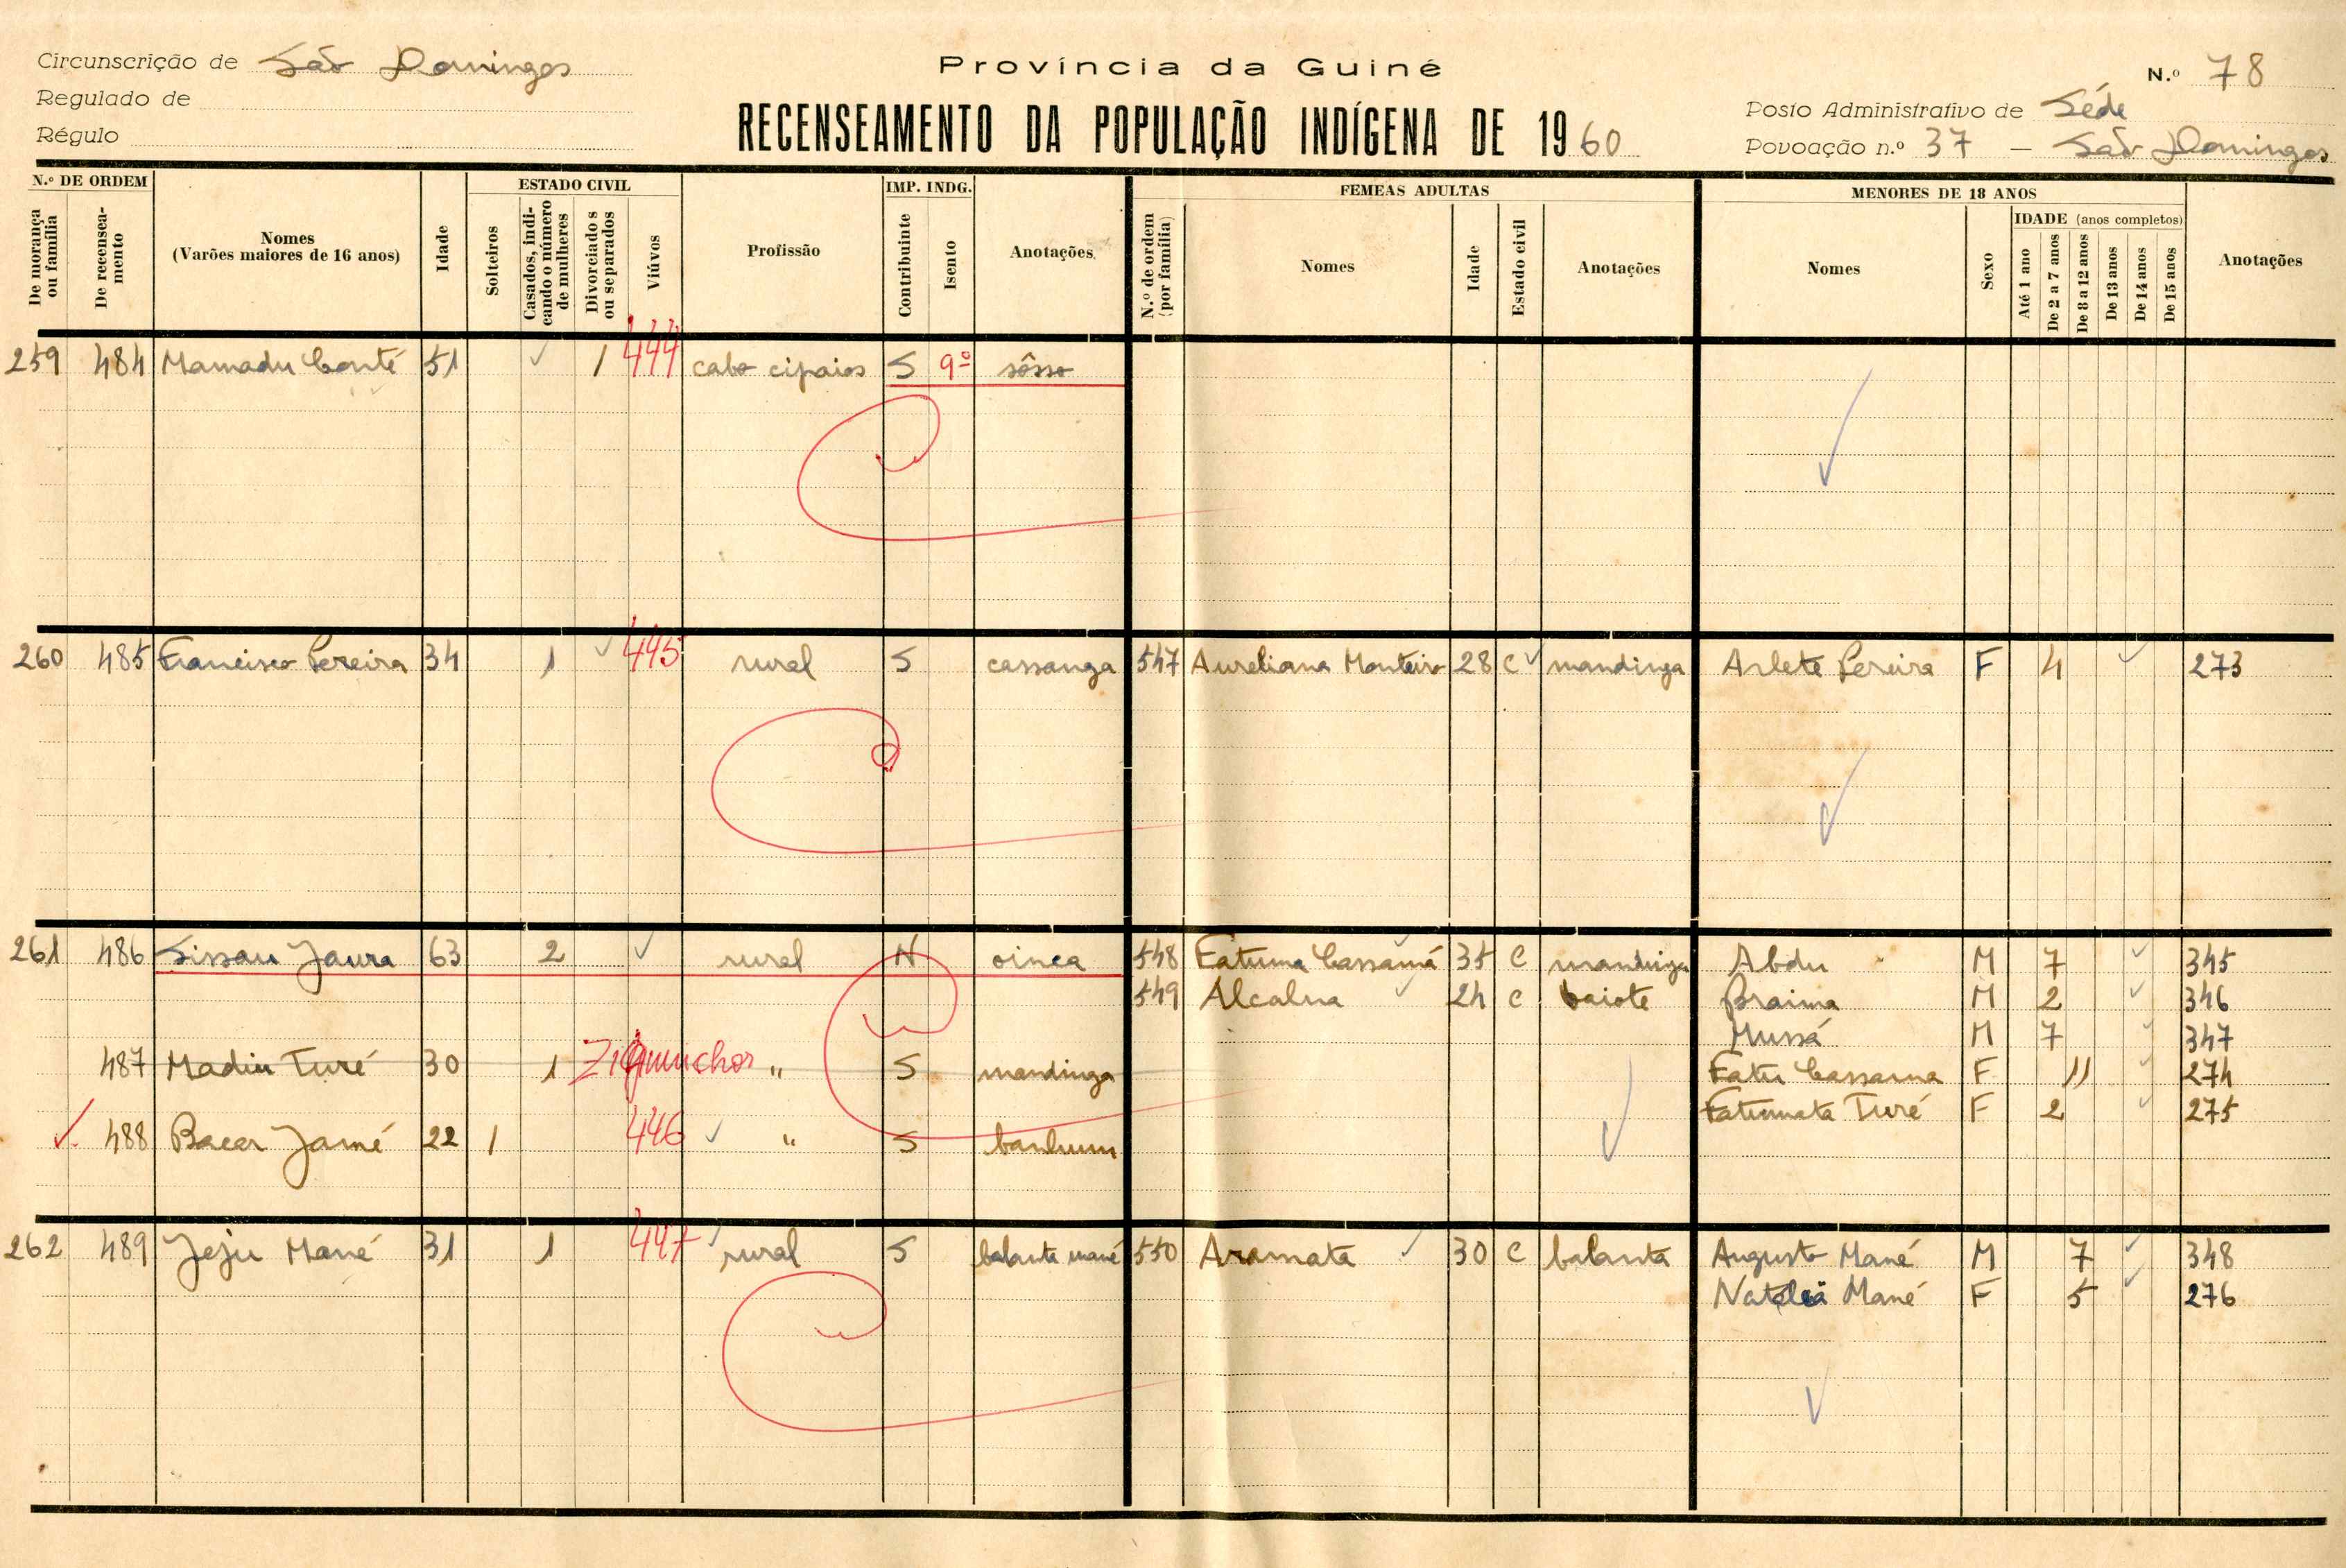 Circunscrição de São Domingos
Regulado de
Régulo
Província da Guiné
RECENSEAMENTO DA POPULAÇÃO INDÍGENA DE 1960
N.º 78
Posto Administrativo de Séde
Povoação n.º 37 — São Domingos
N.º DE ORDEM
De morança ou família
De recenseamento
Nomes
(Varões maiores de 16 anos)
Idade
ESTADO CIVIL
Solteiros
Casados, indicando o número de mulheres
Divorciados ou separados
Viúvos
Profissão
IMP. INDG.
Contribuinte
Isento
Anotações
FEMEAS ADULTAS
N.º de ordem (por família)
Nomes
Idade
Estado civil
Anotações
MENORES DE 18 ANOS
Nomes
Sexo
IDADE (anos completos)
Até 1 ano
De 2 a 7 anos
De 8 a 12 anos
De 13 anos
De 14 anos
De 15 anos
Anotações
259 484 Mamadu Conté 51 1 444 cabo cipaios S 9º sôsso
260 485 Francisco Pereira 34 1 445 rural S cassanga 547 Aureliana Monteiro 28 C mandinga Arlete Pereira F 4 273
261 486 Sissau Jaura 63 2 rural N oinca 548 Fatuma Cassamá 35 C mandinga Abdu M 7 345
549 Alcalna 24 C baiote Braima M 2 346
Mussá M 7 347
487 Madiu Turé 30 1 Ziguinchor " S mandinga Fatu Cassama F 11 274
Fatumata Turé F 2 275
488 Bacar Jamé 22 1 446 " S banhum
262 489 Jeju Mané 31 1 447 rural S balanta mané 550 Aramata 30 C balanta Augusto Mané M 7 348
Natália Mané F 5 276